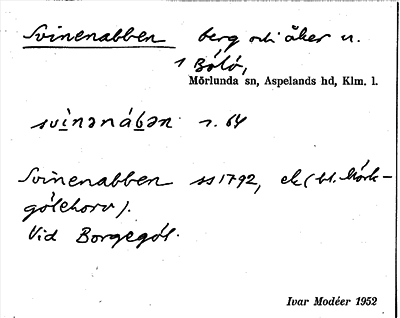 Svinenabben berg och åker n.
1 Bölö,
Mörlunda sn, Aspelands hd, Klm. l.
svìnənábən r. 64
Svinenabben ss 1792, ek (bl. Mörk-
götehorv).
Vid Borgegöl.
Ivar Modéer 1952